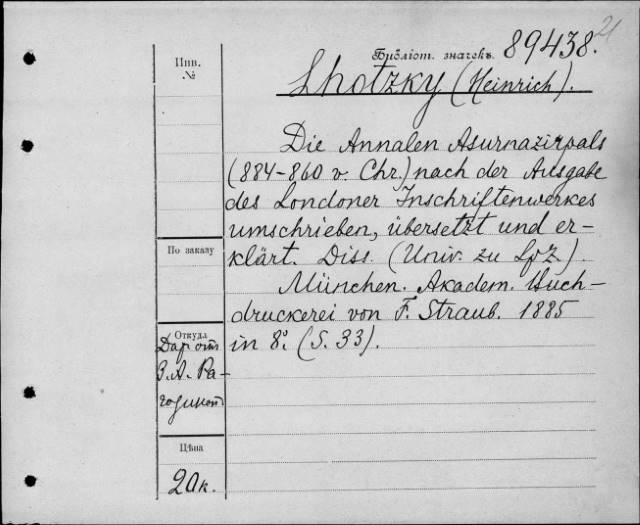 21
Библіот. значекъ 89438.
Инв.
№
Lhotzky (Heinrich).
Die Annalen Asurnazirpals
(884-860 v. Chr.) nach der Ausgabe
des Londoner Inschriftenwerkes
umschrieben, übersetzt und er-
klärt. Diss. (Univ. zu Lpz).
München. Akadem. Buch-
druckerei von F. Straub. 1885
in 8°. (S. 33).
По заказу
Откуда
Дар от
З. А. Ра-
гозиной
Цѣна
20к.